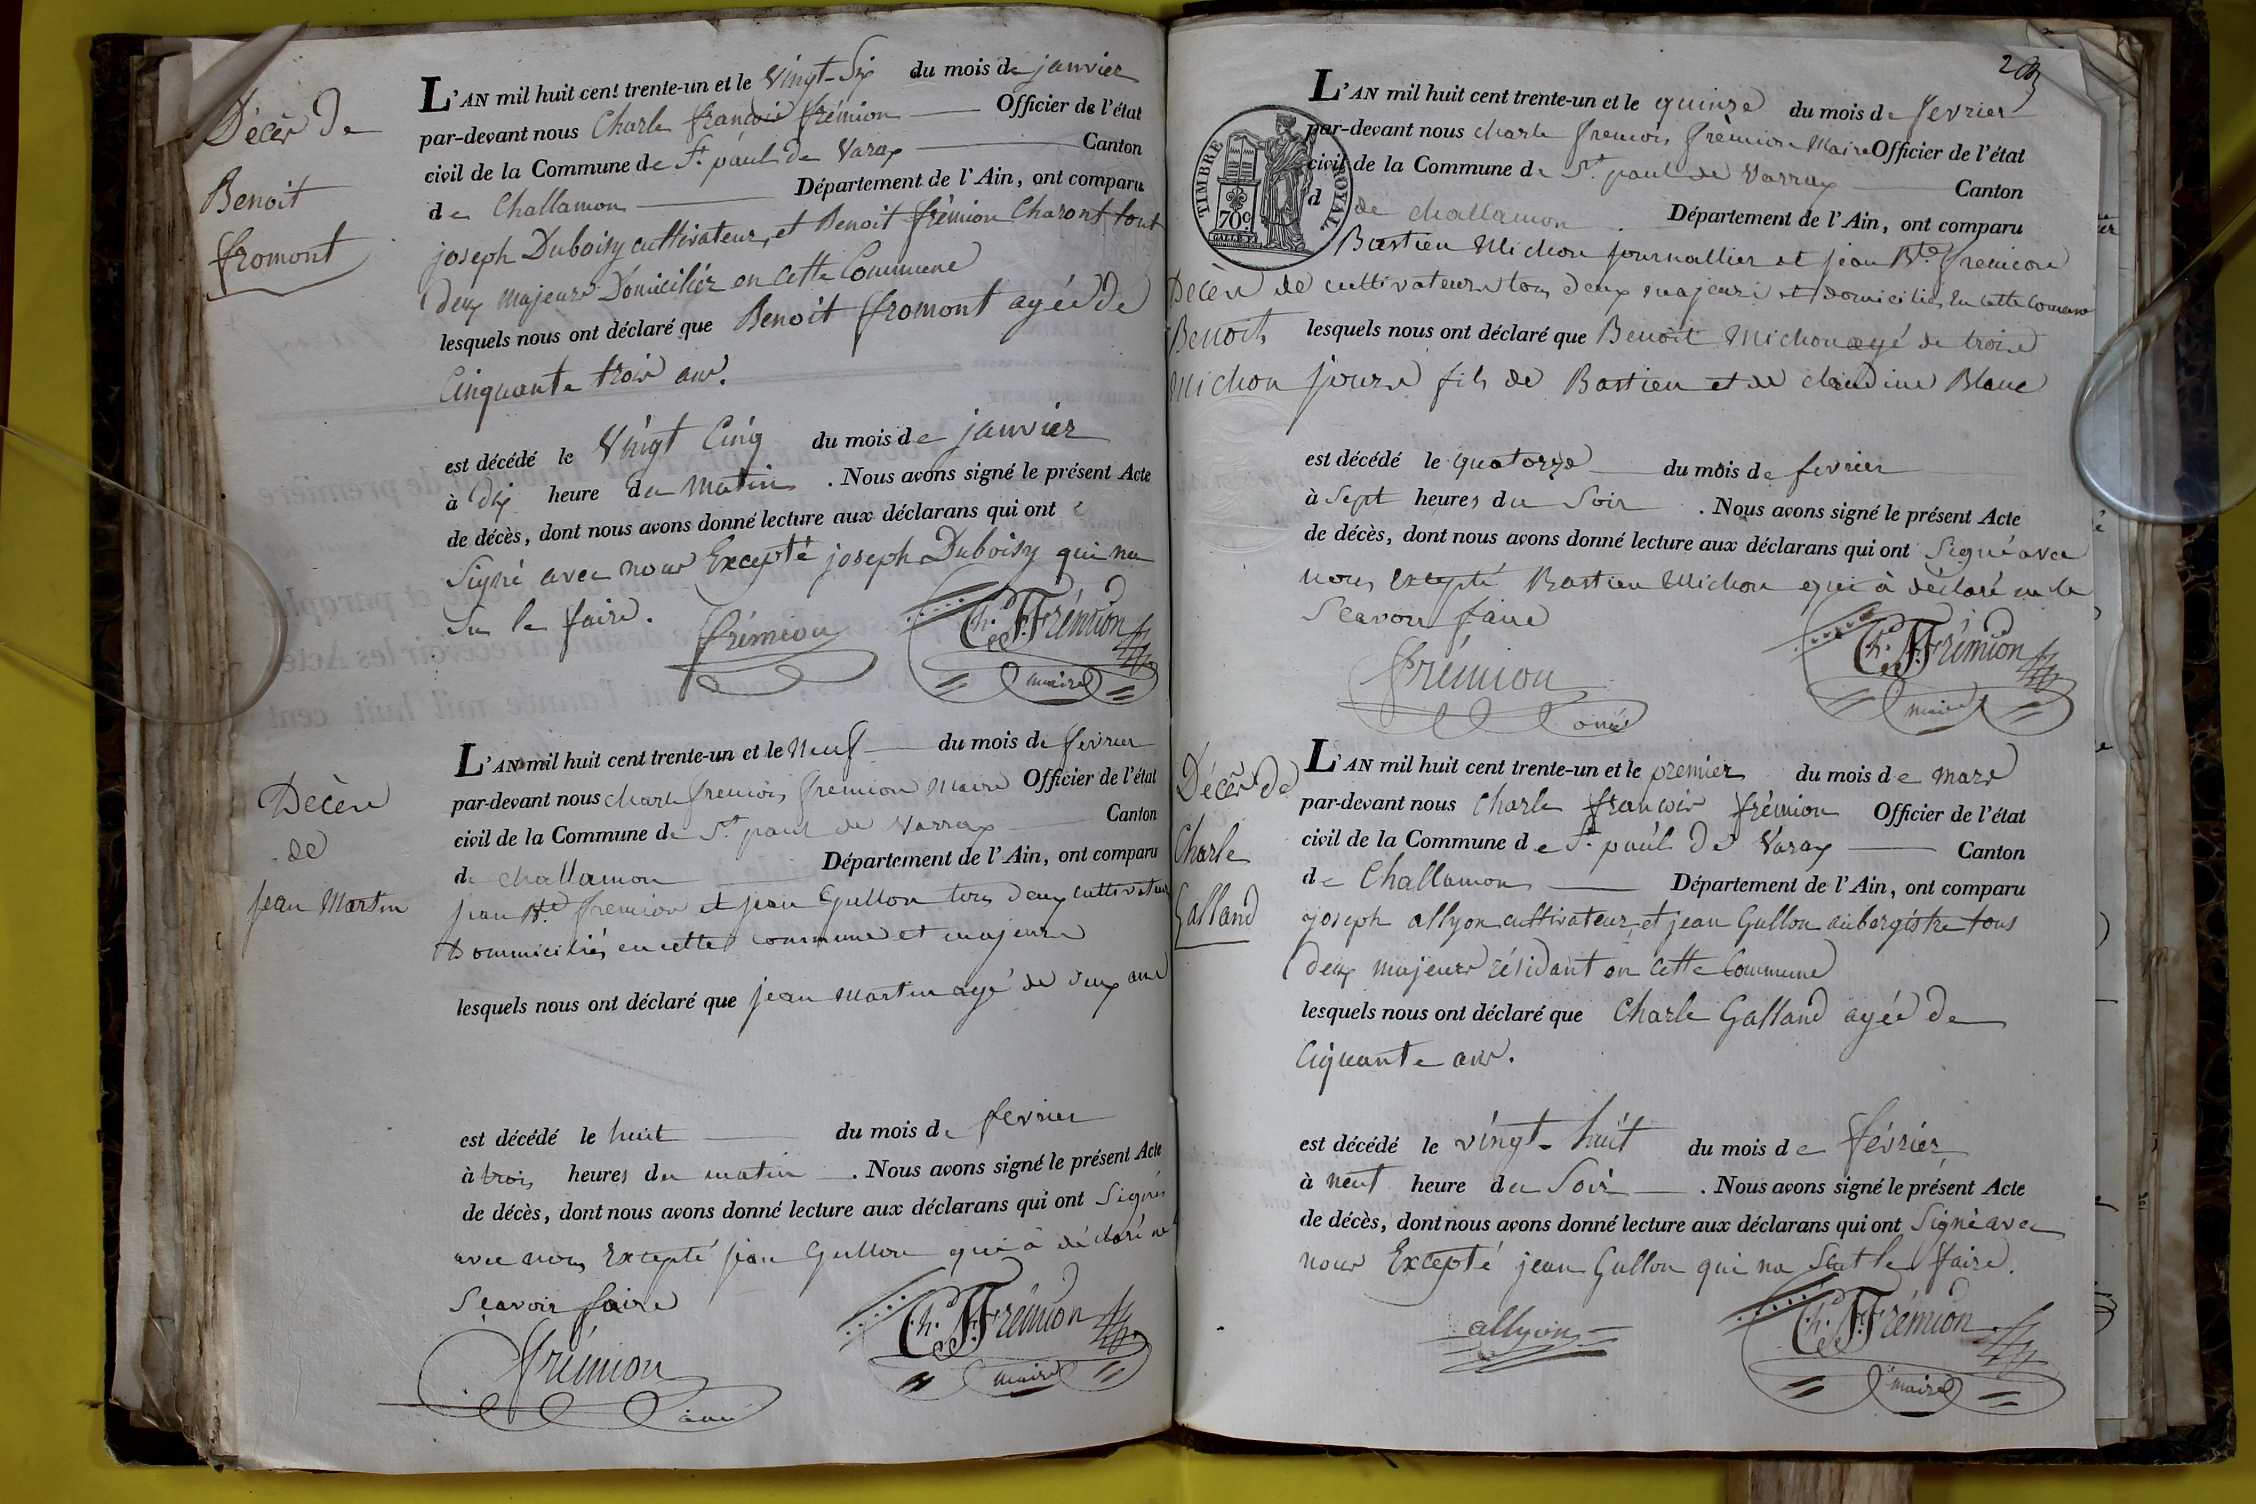 Décès De
Benoit
fromont
L'AN mil huit cent trente-un et le Vingt-Six du mois de janvier
par-devant nous Charle francois frémion Officier de l'état
civil de la Commune de St. paul de Varax Canton
de Challamon Département de l'Ain, ont comparu
joseph Duboisy cultivateur, et Benoit frémion Charont tout
deux majeurs Domiciliéz en Cette Commune
lesquels nous ont déclaré que Benoit fromont agée De
Cinquante trois ans.
est décédé le Vingt Cinq du mois de janvier
à dix heure du Matin . Nous avons signé le présent Acte
de décès, dont nous avons donné lecture aux déclarans qui ont
Signé avec nous Excepté joseph Duboisy qui na
Su le faire.
frémion
Ch.les F. Frémion
maire
Décès
de
jean Martin
L'AN mil huit cent trente-un et le Neuf du mois de fevrier
par-devant nous charle frencois fremion Maire Officier de l'état
civil de la Commune de St paul de Varrax Canton
de challamon Département de l'Ain, ont comparu
jean Bte fremion et jean Gullon tous deux cultivateur
Dommiciliés en cette commune et majeurs
lesquels nous ont déclaré que jean Martin agé de deux ans
est décédé le huit du mois de fevrier
à trois heures du matin . Nous avons signé le présent Acte
de décès, dont nous avons donné lecture aux déclarans qui ont Signés
avec nous Excepté jean Gullon qui à déclaré ne
Sçavoir faire
frémion
Ch.les F. Frémion
maire
TIMBRE ROYAL
70c.
Décès de
Benoit
Michon
L'AN mil huit cent trente-un et le quinze du mois de fevrier
par-devant nous charle frencois frèmion Maire Officier de l'état
civil de la Commune de St. paul de Varrax Canton
d de challamon Département de l'Ain, ont comparu
Bastien Michon journallier et jean Bte fremion
cultivateurs tous deux majeurs et domiciliés En cette Comune
lesquels nous ont déclaré que Benoit Michon agé de trois
jours fils de Bastien et de claudine Blanc
est décédé le quatorze du mois de fevrier
à Sept heures du Soir . Nous avons signé le présent Acte
de décès, dont nous avons donné lecture aux déclarans qui ont Signé avec
nous excepté Bastien Michon qui à déclaré ne le
Scavoir faire
frémion
Ch.les F. Frémion
maire
Décès de
Charle
Galland
L'AN mil huit cent trente-un et le premier du mois de mars
par-devant nous Charle francois frémion Officier de l'état
civil de la Commune de St. paul De Varax Canton
de Challamon Département de l'Ain, ont comparu
joseph allyon cultivateur, et jean Gullon aubergistre tous
deux majeurs résidant en Cette Commune
lesquels nous ont déclaré que Charle Galland agée De
Ciquante ans.
est décédé le vingt-huit du mois de février
à neuf heure du Soir . Nous avons signé le présent Acte
de décès, dont nous avons donné lecture aux déclarans qui ont Signé avec
nous Excepté jean Gullon qui na Scut le faire.
allyon
Ch.les F. Frémion
maire